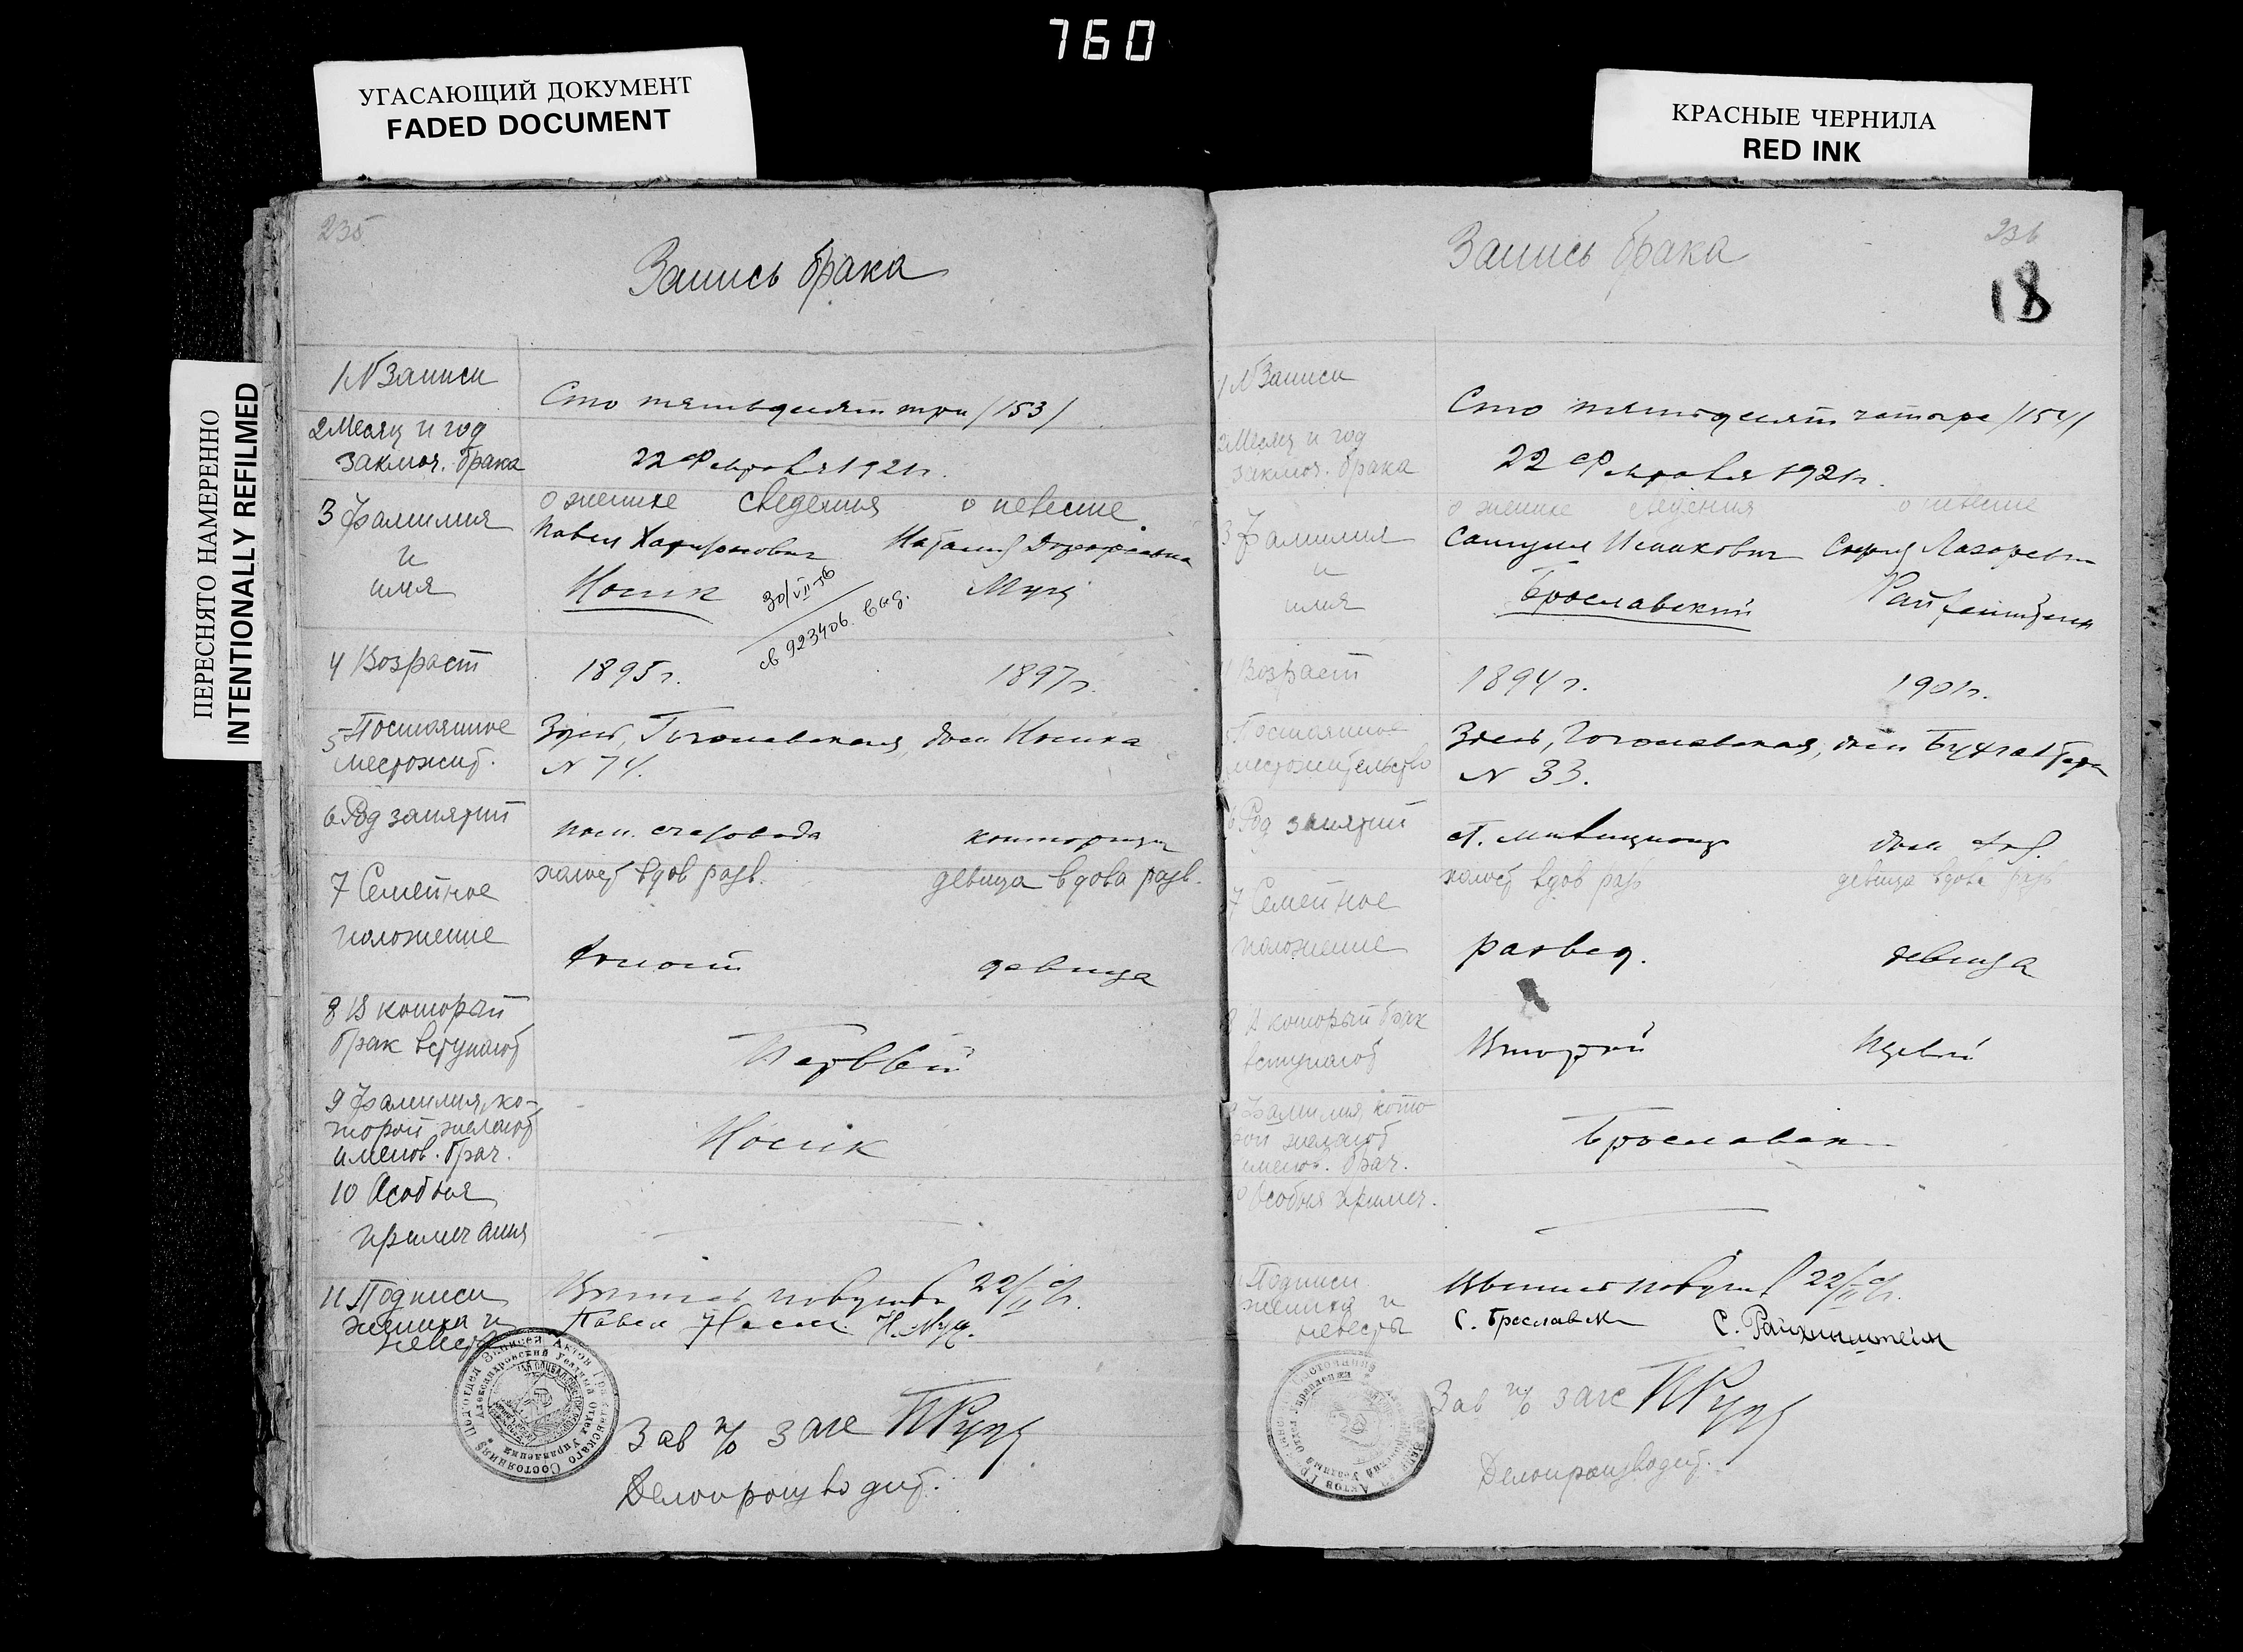 760
УГАСАЮЩИЙ ДОКУМЕНТ
FADED DOCUMENT
КРАСНЫЕ ЧЕРНИЛА
RED INK
ПЕРЕСНЯТО НАМЕРЕННО
INTENTIONALLY REFILMED
235
Запись брака
1 N Записи
Сто пятьдесят три /153/
2 Месяц и год
заключ. брака
22 Февраля 1921г.
3 Фамилия
и
имя
о женихе сведения о невесте
Павел Наталия
Носик Муц
30/VII 56
св 923406 выд.
4 Возраст
1895г. 1897г.
5 Постоянное
местожит.
Здесь, Гоголевская, дом Носика
N 74.
6 Род занятий
пом. счетовода конторщица
7 Семейное
положение
холост вдов разв. девица вдова разв.
холост девица
8 В который
брак вступают
Первый
9 Фамилия, ко-
торой желают
именов. брач.
Носик
10 Особыя
примечания
11 Подписи
жениха и
невесты
22/II 21г.
Павел Носик Н. Муц.
Зав п/о загс
Делопроизводит.
236
18
Запись брака
1 N Записи
Сто пятьдесят четыре /154/
2 Месяц и год
заключ. брака
22 Февраля 1921г.
3 Фамилия
и
имя
о женихе сведения о невесте
Самуил Исаакович Лазаревн
Брославский
4 Возраст
1894г. 1901г.
5 Постоянное
местожительство
Здесь, Гоголевская, дом
N 33.
6 Род занятий
7 Семейное
положение
холост вдов разв девица вдова разв
развед. девица
8 В который брак
вступают
Второй Первый
9 Фамилия кото-
рой желают
именов. брач.
Брославск
10 Особыя примеч.
11 Подписи
жениха и
невесты
22/II 21г.
С. Брославск С. Райхинштейн
Зав п/о загс
Делопроизводит.